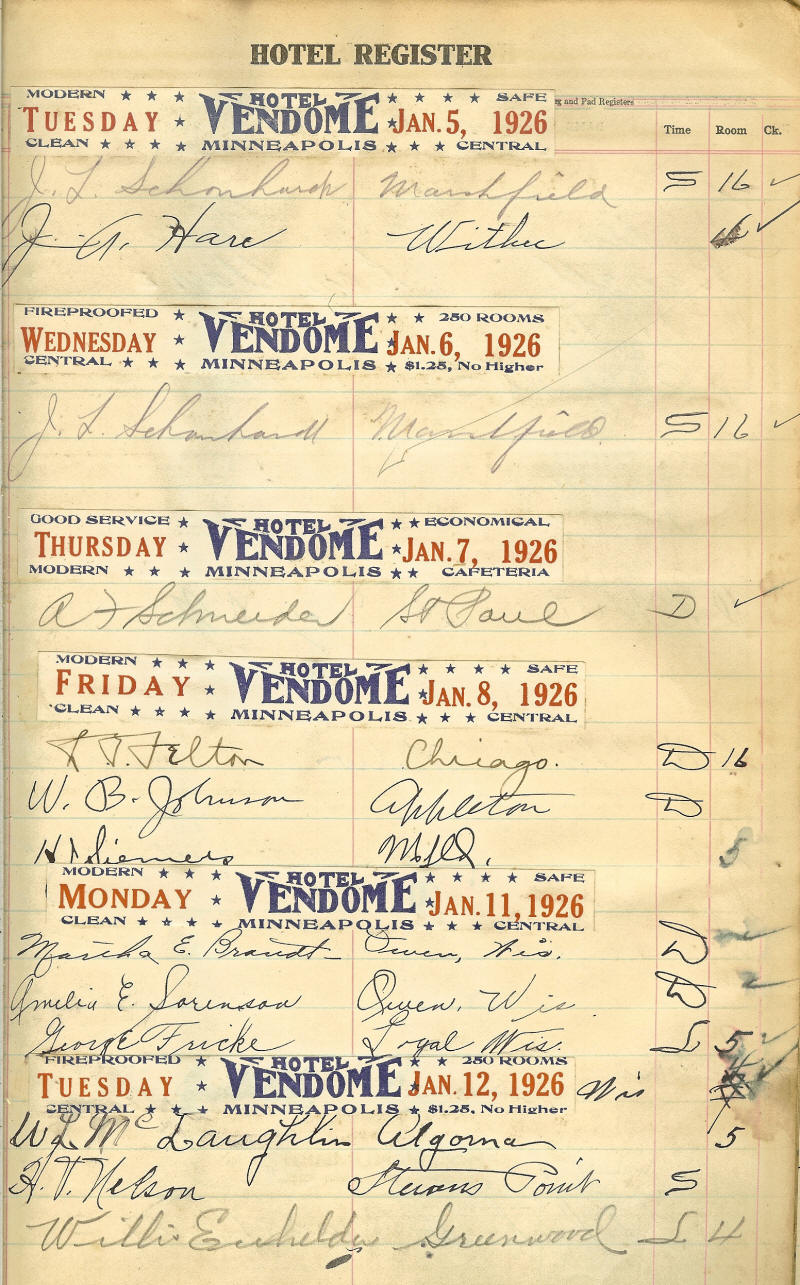 HOTEL REGISTER
g and Pad Registers
Time Room Ck.
MODERN ★ ★ ★ HOTEL ★ ★ ★ ★ SAFE
TUESDAY ★ VENDOME ★ JAN. 5, 1926
CLEAN ★ ★ ★ ★ MINNEAPOLIS ★ ★ ★ CENTRAL
J. L. Schonhardt Marshfield S 16 ✓
J. A. Hare Withee 16 ✓
FIREPROOFED ★ HOTEL ★ ★ 250 ROOMS
WEDNESDAY ★ VENDOME ★ JAN. 6, 1926
CENTRAL ★ ★ ★ MINNEAPOLIS ★ $1.25, No Higher
J. L. Schonhardt Marshfield S 16 ✓
GOOD SERVICE ★ HOTEL ★ ★ ECONOMICAL
THURSDAY ★ VENDOME ★ JAN. 7, 1926
MODERN ★ ★ ★ MINNEAPOLIS ★ ★ CAFETERIA
A F Schneider St Paul D ✓
MODERN ★ ★ ★ HOTEL ★ ★ ★ ★ SAFE
FRIDAY ★ VENDOME ★ JAN. 8, 1926
CLEAN ★ ★ ★ ★ MINNEAPOLIS ★ ★ ★ CENTRAL
T. Felton Chicago. D 16
W. B. Johnson Appleton D
Siemers Mfld. 5
MODERN ★ ★ ★ HOTEL ★ ★ ★ ★ SAFE
MONDAY ★ VENDOME ★ JAN. 11, 1926
CLEAN ★ ★ ★ ★ MINNEAPOLIS ★ ★ ★ CENTRAL
Martha E. Brandt Owen, Wis. D
Amelia E. Sorenson Owen, Wis D 2
George Fricke Loyal Wis. L 5 ✓
FIREPROOFED ★ HOTEL ★ ★ 250 ROOMS
TUESDAY ★ VENDOME ★ JAN. 12, 1926 Wis
CENTRAL ★ ★ ★ MINNEAPOLIS ★ $1.25, No Higher
W L McLaughlin Algoma 5
H. T. Nelson Stevens Point S
Willi Greenwood L 4